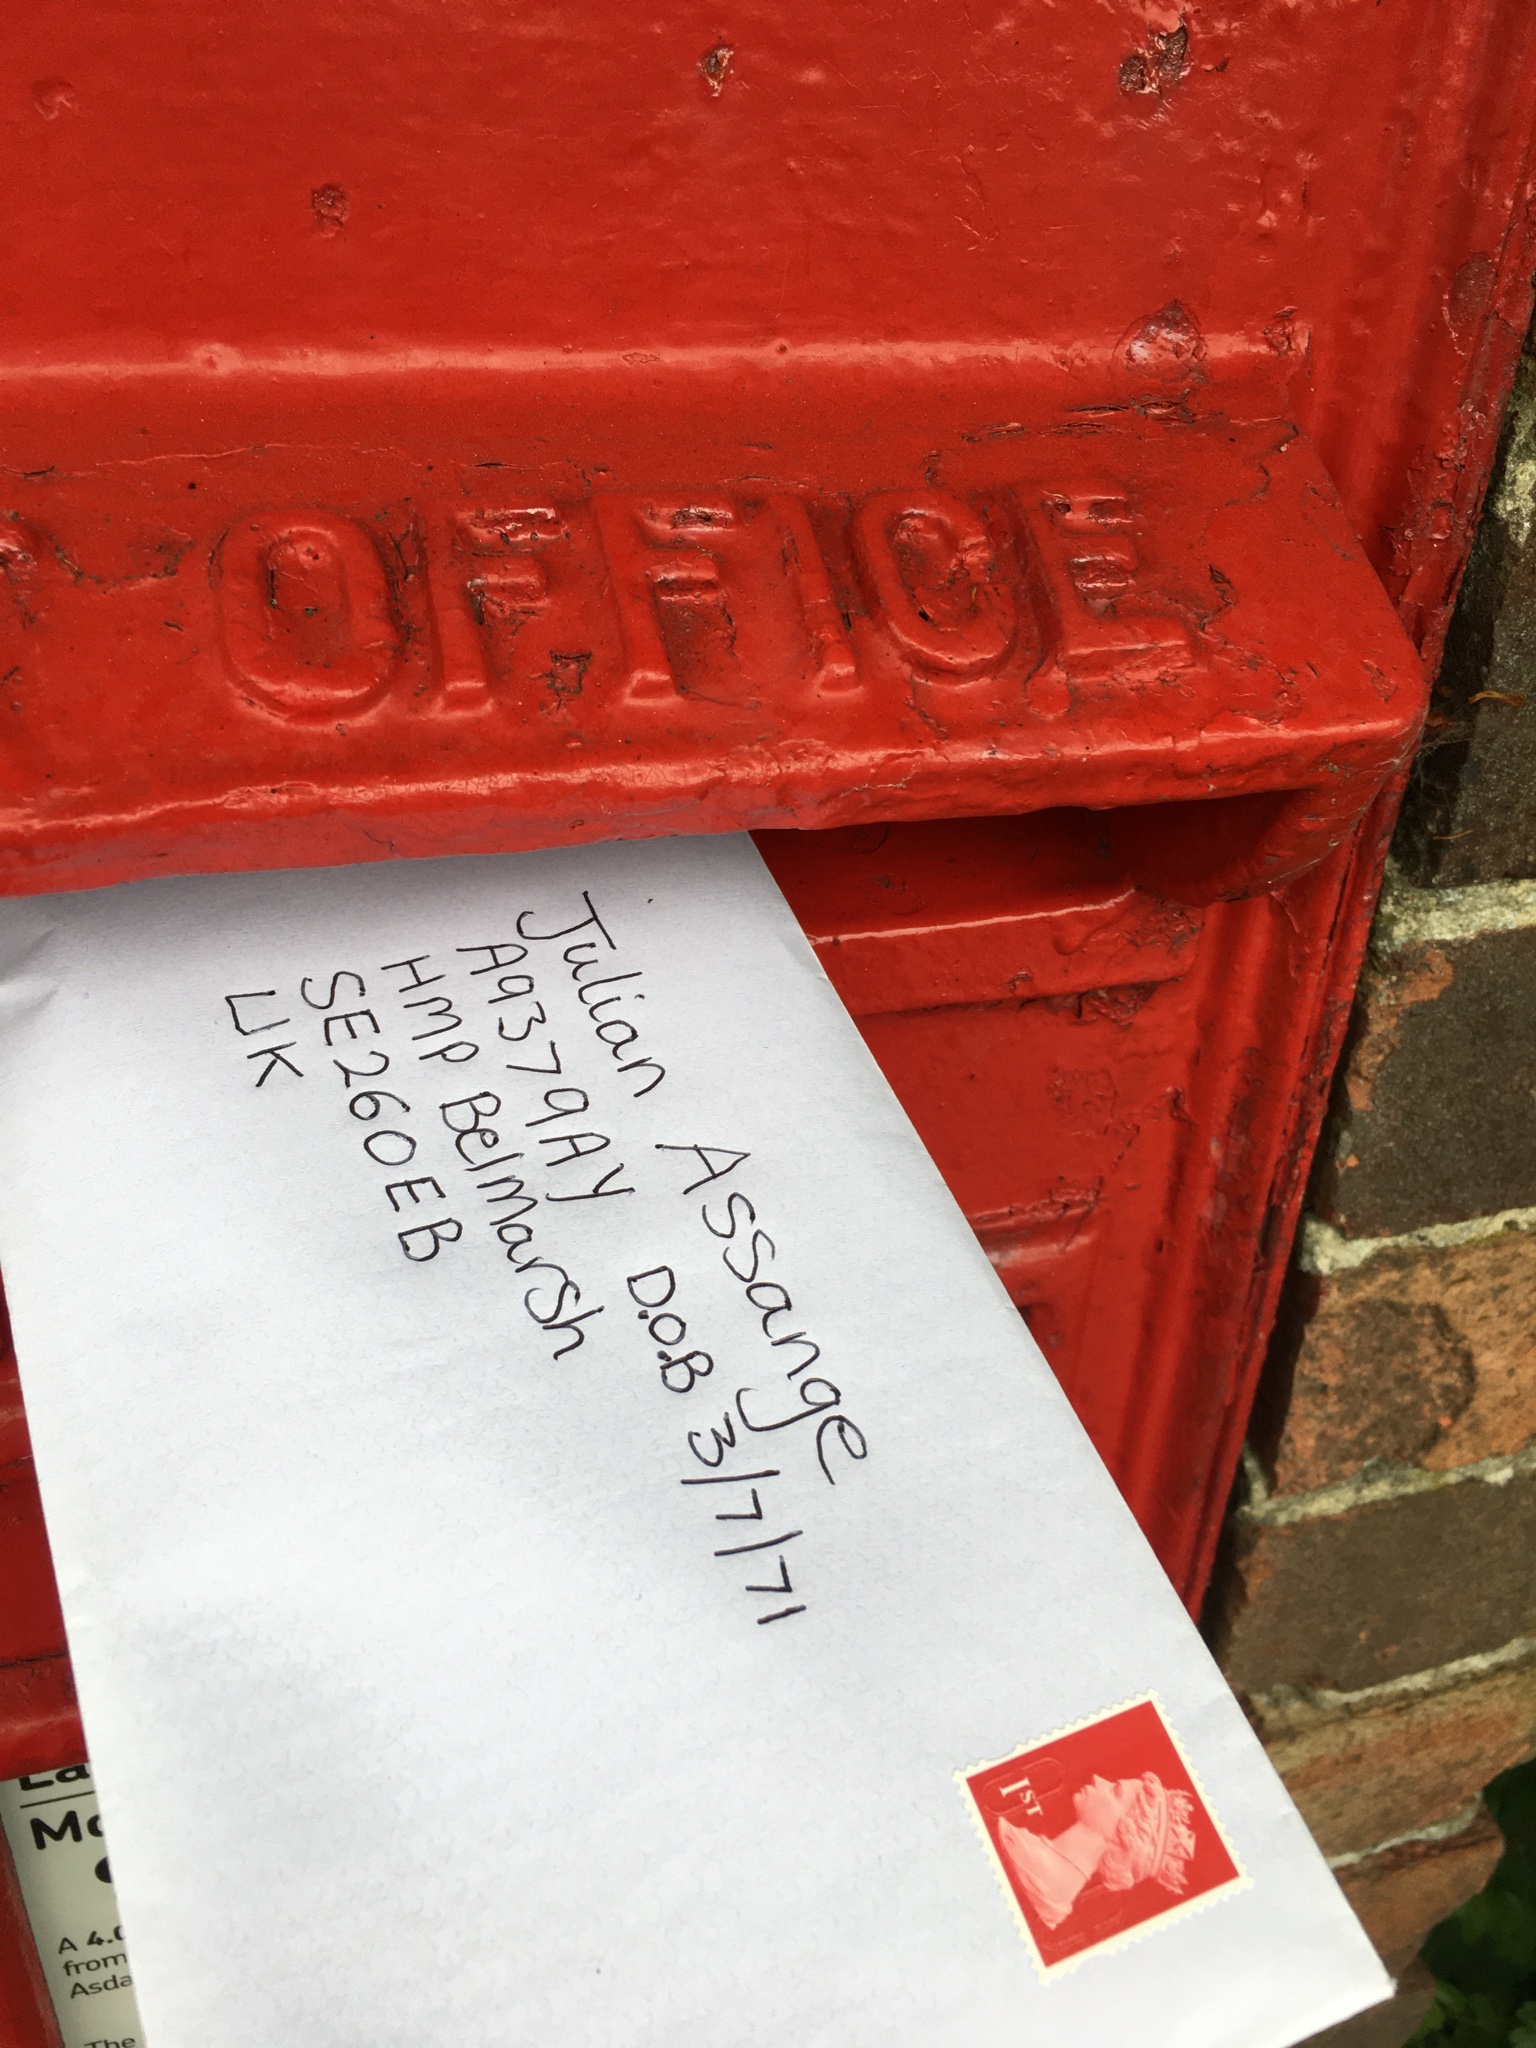 OFFICE
Julian Assange
A9379AY D.O.B 3/7/71
HMP Belmarsh
SE260EB
UK
1ST
La
Mo
A 4.0
from
Asda
The